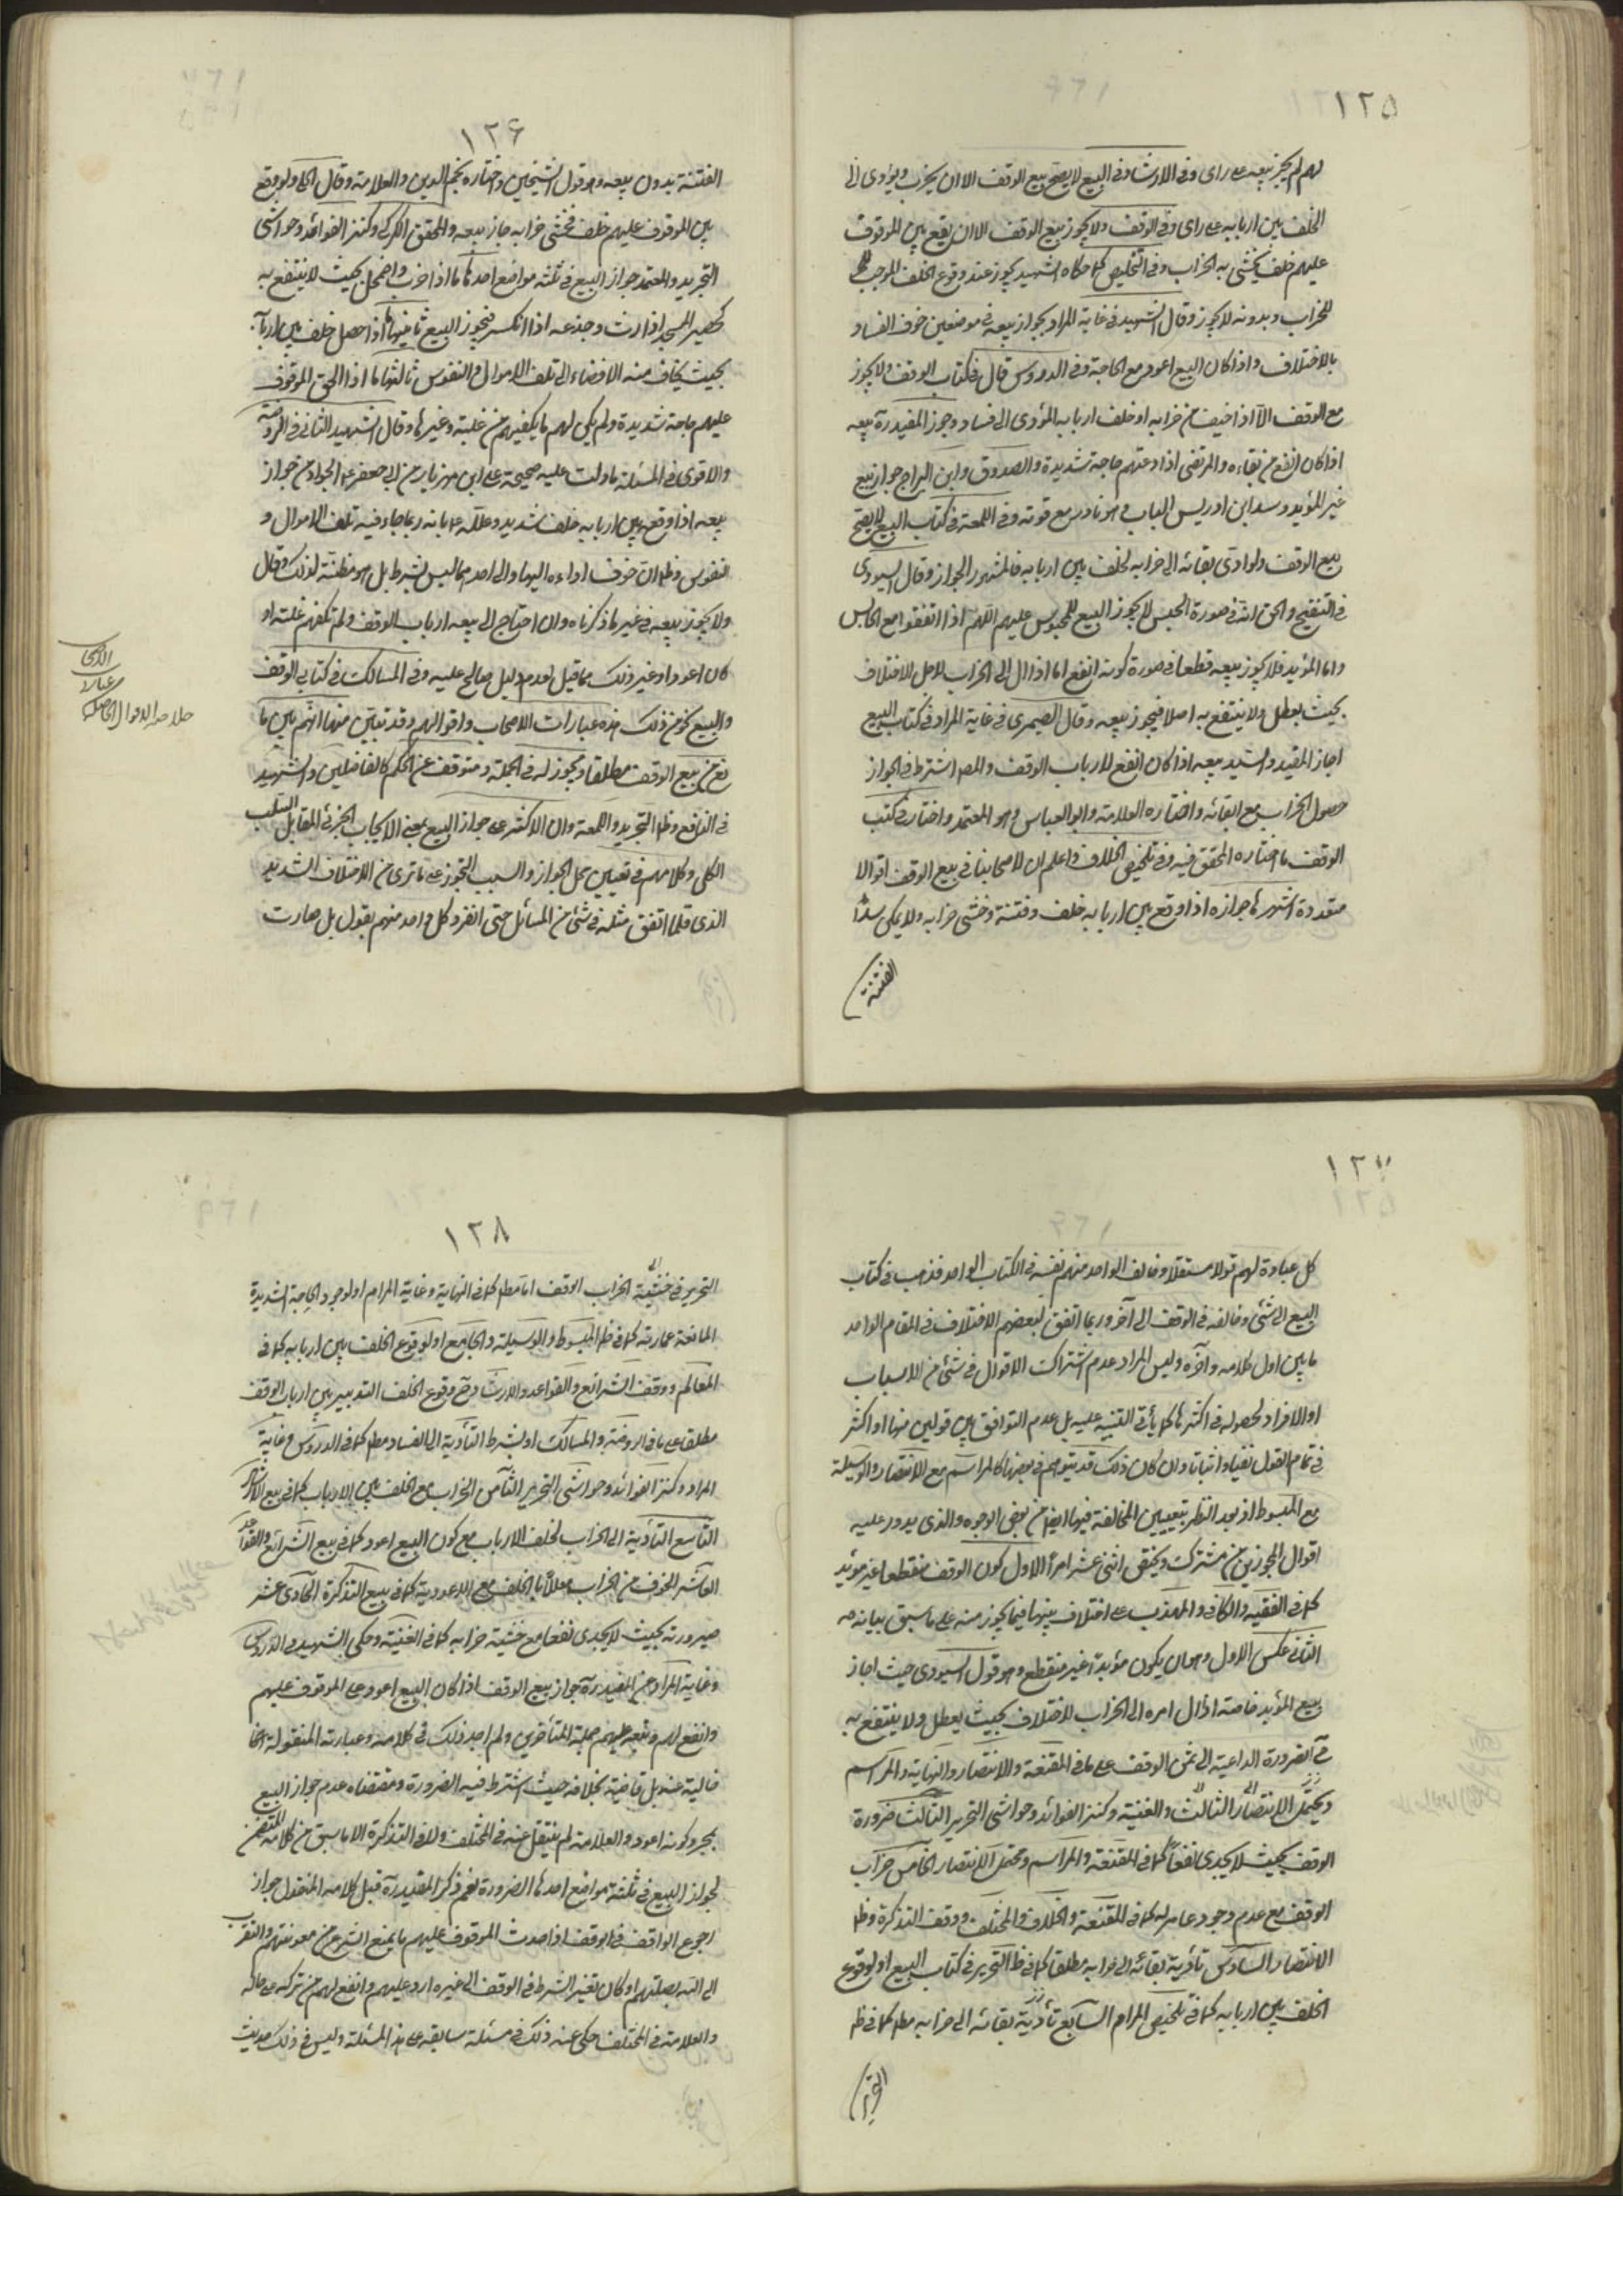 ١٢٥
لهم لم يجز بيعه على راى وفى الارشاد فى البيع لا يصح بيع الوقف الا ان يخرب ويؤدى الى
الخلف بين اربابه على راى وفى الوقف ولا يجوز بيع الوقف الا ان يقع بين الموقوف
عليهم خلف يخشى به الخراب وفى التلخيص كما حكاه الشهيد يجوز عند وقوع الخلف الموجب
للخراب وبدونه لا يجوز وقال الشهيد فى غاية المراد يجوز بيعه فى موضعين خوف الفساد
بالاختلاف واذا كان البيع اعود مع الحاجة وفى الدروس قال فى كتاب الوقف ولا يجوز
بيع الوقف الا اذا خيف من خرابه او خلف اربابه المؤدى الى فساد وجوز المفيد ره بيعه
اذا كان انفع من بقاءه والمرتضى اذا دعتهم حاجة شديدة والصدوق وابن البراج جواز بيع
غير المؤبد وسد ابن ادريس الباب وهو نادر مع قوته وفى اللمعة فى كتاب البيع لا يصح
بيع الوقف ولو ادى بقائه الى خرابه لخلف بين اربابه فالمشهور الجواز وقال السيورى
فى التنقيح والحق انه فى صورة الحبس لا يجوز البيع للمحبوس عليهم اللهم اذا اتفقوا مع الحابس
واما المؤبد فلا يجوز بيعه قطعا فى صورة كونه انفع اما اذا ال الى الخراب لاجل الاختلاف
بحيث يعطل ولا ينتفع به اصلا فيجوز بيعه وقال الصيمرى فى غاية المرام فى كتاب البيع
اجاز المفيد والسيد بيعه اذا كان انفع لارباب الوقف والمص اشترط فى الجواز
حصول الخراب مع ابقائه واختاره العلامة وابو العباس وهو المعتمد واختار فى كتب
الوقف ما اختاره المحقق فيه وفى تلخيص الخلاف واعلم ان لاصحابنا فى بيع الوقف اقوالا
متعددة اشهرها جوازه اذا وقع بين اربابه خلف وفتنة وخشى خرابه ولا يمكن سد
الفتنة
١٢۶
الفتنة بدون بيعه وهو قول الشيخين واختاره نجم الدين والعلامة وقال الخ ولو وقع
بين الموقوف عليهم خلف فخشى خرابه جاز بيعه والمحقق الكركى وكنز الفوائد وحواشى
التجريد والمعتمد جواز البيع فى ثلثه مواضع احدها ما اذا خرب واضمحل بحيث لا ينتفع به
كحصير المسجد اذا رث وجذعه اذا انكسر فيجوز البيع ثانيها اذا حصل خلف بين اربابه
بحيث يخاف منه الافضاء الى تلف الاموال والنفوس ثالثها ما اذا الحق الموقوف
عليهم حاجة شديدة ولم يكن لهم ما يكفيهم من غلته وغيرها وقال الشهيد الثانى فى الروضة
والاقوى فى المسئلة ما دلت عليه صحيحة على ابن مهزيار عن ابى جعفر ع الجواد من جواز
بيعه اذا وقع بين اربابه خلف شديد وعلله ع بانه ربما جاء فيه تلف الاموال و
النفوس وظ ان خوف اداءه اليها والى احدهما ليس بشرط بل هو مظنة لذلك وقال
ولا يجوز بيعه فى غير ما ذكرناه وان احتاج الى بيعه ارباب الوقف ولم تكفهم غلته او
كان اعود او غير ذلك مما قيل لعدم دليل صالح عليه وفى المسالك فى كتابى الوقف
والبيع نحو من ذلك هذه عبارات الاصحاب واقوالهم وقد تبين منها انهم بين ما
نع من بيع الوقف مطلقا ومجوز له فى الجملة ومتوقف عن الحكم كالفاضلين والشهيد
فى النافع وظ التجريد واللمعة وان الاكثر على جواز البيع بمعنى الايجاب الجزئى المقابل للسلب
الكلى وكلامهم فى تعيين محل الجواز والسبب المجوز على ما ترى من الاختلاف الشديد
الذى قلما اتفق مثله فى شئ من المسائل حتى انفرد كل واحد منهم بقول بل صارت
عبارة
الاقوال الحاصلة
١٢٧
كل عبارة لهم قولا مستقلا وخالف الواحد منهم نفسه فى الكتاب الواحد فذهب فى كتاب
البيع الى شئ وخالفه فى الوقف الى آخر وربما اتفق لبعضهم الاختلاف فى المقام الواحد
ما بين اول كلامه وآخره وليس المراد عدم اشتراك الاقوال فى شئ من الاسباب
او الافراد لحصوله فى اكثرها كما يأتى التنبيه عليه بل عدم التوافق بين قولين منها او اكثر
فى تمام القول نفيا واثباتا وان كان ذلك قد يتوهم فى بعضها كالمراسم مع الانتصار والوسيلة
مع المبسوط اذ بعد النظر يتعيين المخالفة فيها ايضا من بعض الوجوه والذى يدور عليه
اقوال المجوزين من مشترك ومختص اثنى عشر امرا الاول كون الوقف منقطعا غير مؤبد
كما فى الفقيه والكافى والمهذب على اختلاف بينها فيما يجوز منه على ما سبق بيانه
الثانى عكس الاول وهو ان يكون مؤبدا غير منقطع وهو قول السيورى حيث اجاز
بيع المؤبد خاصة اذا ال امره الى الخراب لاختلاف بحيث يعطل ولا ينتفع به
الضرورة الداعية الى ثمن الوقف على ما فى المقنعة والانتصار والنهاية والمراسم
ويحتمل الانتصار الثالث والغنية وكنز الفوائد وحواشى التحرير الثالث ضرورة
الوقف بحيث لا يجدى نفعا كما فى المقنعة والمراسم ومحتمل الانتصار الخامس خراب
الوقف مع عدم وجود عامر له كما فى المقنعة والخلاف والمختلف ووقف التذكرة وظ
الانتصار السادس تأدية بقائه الى خرابه مطلقا كما فى ظ التحرير فى كتاب البيع او لوقوع
الخلف بين اربابه كما فى تلخيص المرام السابع تأدية بقائه الى خرابه مطم كما فى ظ
التحرير
١٢٨
التحرير فى خشية الخراب الوقف اما مطم كما فى النهاية وغاية المرام او لوجود الحاجة الشديدة
المانعة عمارته كما فى ظ المبسوط والوسيلة والجامع او لوقوع الخلف بين اربابه كما فى
المعالم ووقف الشرائع والقواعد والارشاد وقوع الخلف الشديد بين ارباب الوقف
مطلقا على ما فى الروضة والمسالك او بشرط التأدية الى الفساد مطم كما فى الدروس وغاية
المراد وكنز الفوائد وحواشى التحرير الثامن الخراب مع الخلف بين الارباب كما فى بيع الارشاد
التاسع التأدية الى الخراب لخلف الارباب مع كون البيع اعود كما فى بيع الشرائع والقواعد
العاشر الخوف من الخراب معللا بالخلف مع الاعودية كما فى بيع التذكرة الحادى عشر
صيرورته بحيث لا يجدى نفعا مع خشية خرابه كما فى الغنية وحكى الشهيد فى الدروس
وغاية المراد عن المفيد ره جواز بيع الوقف اذا كان البيع اعود على الموقوف عليهم
وانفع لهم وتبعه عليهم جملة المتأخرين ولم اجد ذلك فى كلامه وعبارته المنقولة انفا
خالية عنه بل قاضية بخلافه حيث اشترط فيه الضرورة ومقتضاه عدم جواز البيع
بمجرد كونه اعود والعلامة لم ينقل عنه فى المختلف ولا فى التذكرة الا ما سبق من كلامه المتضمن
لجواز البيع فى ثلثة مواضع احدها الضرورة نعم ذكر المفيد ره قبل كلامه المنقول جواز
رجوع الواقف فى الوقف اذا احدث الموقوف عليهم ما يمنع الشرع من معونتهم والتقرب
الى الله بصلتهم او كان تغيير الشرط فى الوقف الى غيره ارد عليهم وانفع لهم من تركه على حاله
والعلامة فى المختلف حكى عنه ذلك فى مسئلة سابقة على هذه المسئلة وليس فى ذلك حديث